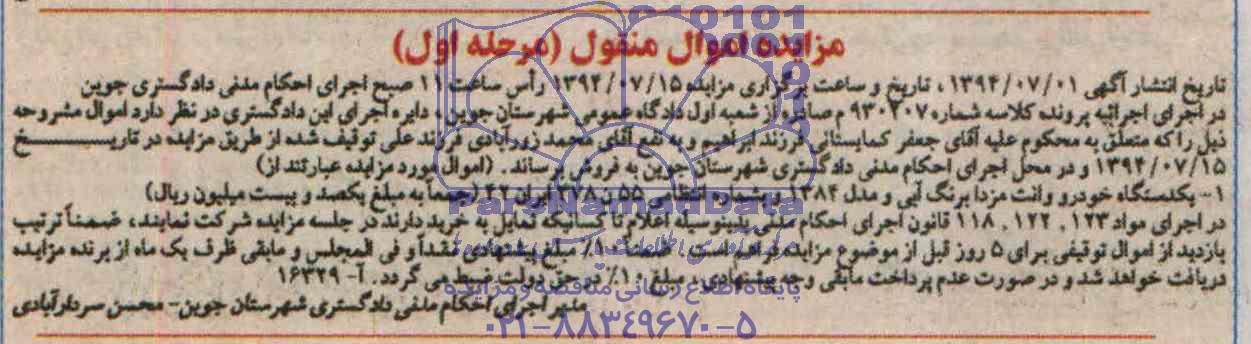 مزایده اموال منقول (مرحله اول)
تاریخ انتشار آگهی ۱۳۹۴/۰۷/۰۱ ، تاریخ و ساعت برگزاری مزایده ۱۳۹۴/۰۷/۱۵ رأس ساعت ۱۱ صبح اجرای احکام مدنی دادگستری جوین
در اجرای اجرائیه پرونده کلاسه شماره ۹۳۰۲۰۷ م صادره از شعبه اول دادگاه عمومی شهرستان جوین ، دایره اجرای این دادگستری در نظر دارد اموال مشروحه
ذیل را که متعلق به محکوم علیه آقای جعفر کمایستانی فرزند ابراهیم و به نفع آقای محمد زورآبادی فرزند علی توقیف شده از طریق مزایده در تاریـــــــــخ
۱۳۹۴/۰۷/۱۵ و در محل اجرای احکام مدنی دادگستری شهرستان جوین به فروش برساند . (اموال مورد مزایده عبارتند از)
۱- یکدستگاه خودرو وانت مزدا برنگ آبی و مدل ۱۳۸۴ و بشماره انتظامی ۵۵ ن ۲۷۸ ایران ۴۲ (جمعاً به مبلغ یکصد و بیست میلیون ریال)
در اجرای مواد ۱۲۳ , ۱۲۲ , ۱۱۸ قانون اجرای احکام مدنی بدینوسیله اعلام تا کسانیکه تمایل به خرید دارند در جلسه مزایده شرکت نمایند، ضمناً ترتیب
بازدید از اموال توقیفی برای ۵ روز قبل از موضوع مزایده فراهم است . ضمناً ۱۰٪ مبلغ پیشنهادی نقداً و فی المجلس و مابقی ظرف یک ماه از برنده مزایده
دریافت خواهد شد و در صورت عدم پرداخت مابقی وجه پیشنهادی ، مبلغ ۱۰٪ در حق دولت ضبط می گردد. آ- ۱۶۳۲۹
مدیر اجرای احکام مدنی دادگستری شهرستان جوین- محسن سردارآبادی
ParsNamadData
پایگاه اطلاع رسانی مناقصه و مزایده
۰۲۱-۸۸۳۴۹۶۷۰-۵